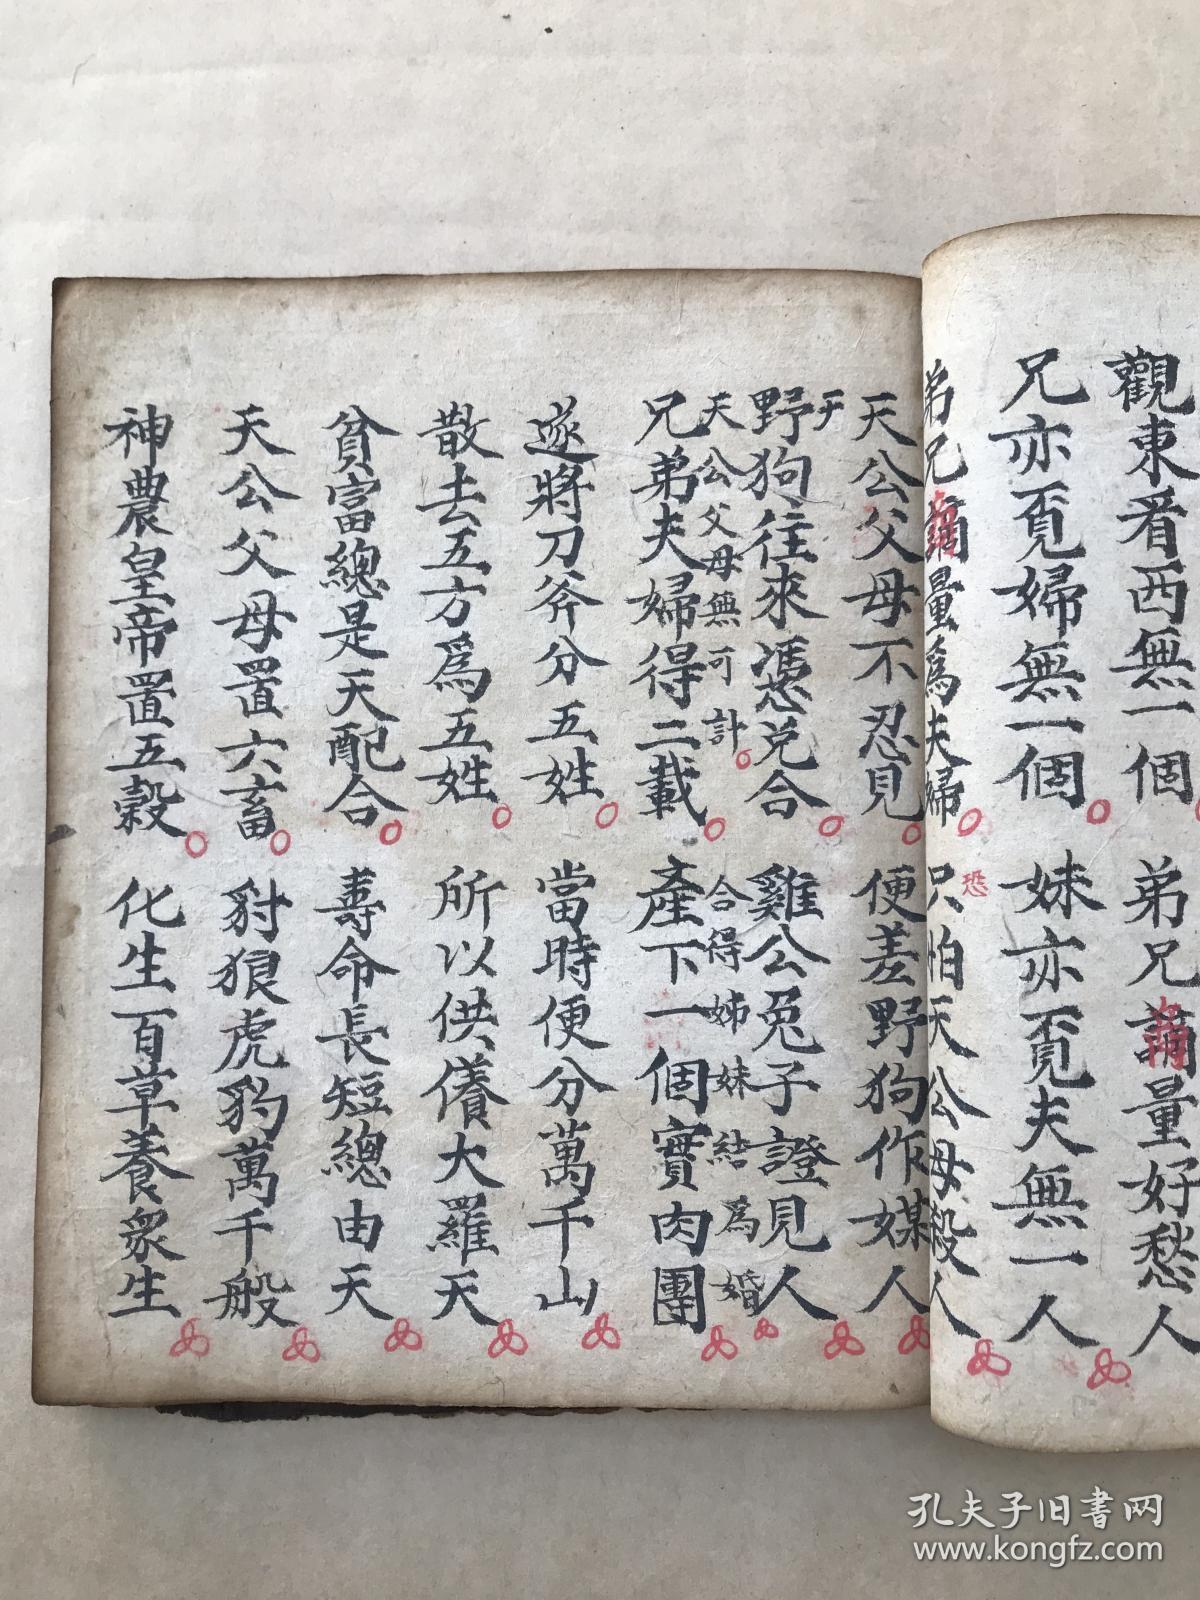 觀東看西無一個 弟兄啇量好愁人
兄亦覓婦無一個 妹亦覓夫無一人
弟兄啇量為夫婦 只怕天公母殺人
恐
天公父母不忍見 便差野狗作媒人
野狗往來憑兑合 雞公兔子證見人
天
天公父母無可計 合得姊妹結為婚
兄弟夫婦得二載 產下一個實肉團
遂將刀斧分五姓 當時便分萬千山
散去五方為五姓 所以供養大羅天
貧富總是天配合 壽命長短總由天
天公父母置六畜 豺狼虎豹萬千般
神農皇帝置五穀 化生百草養衆生
孔夫子旧书网
www.kongfz.com